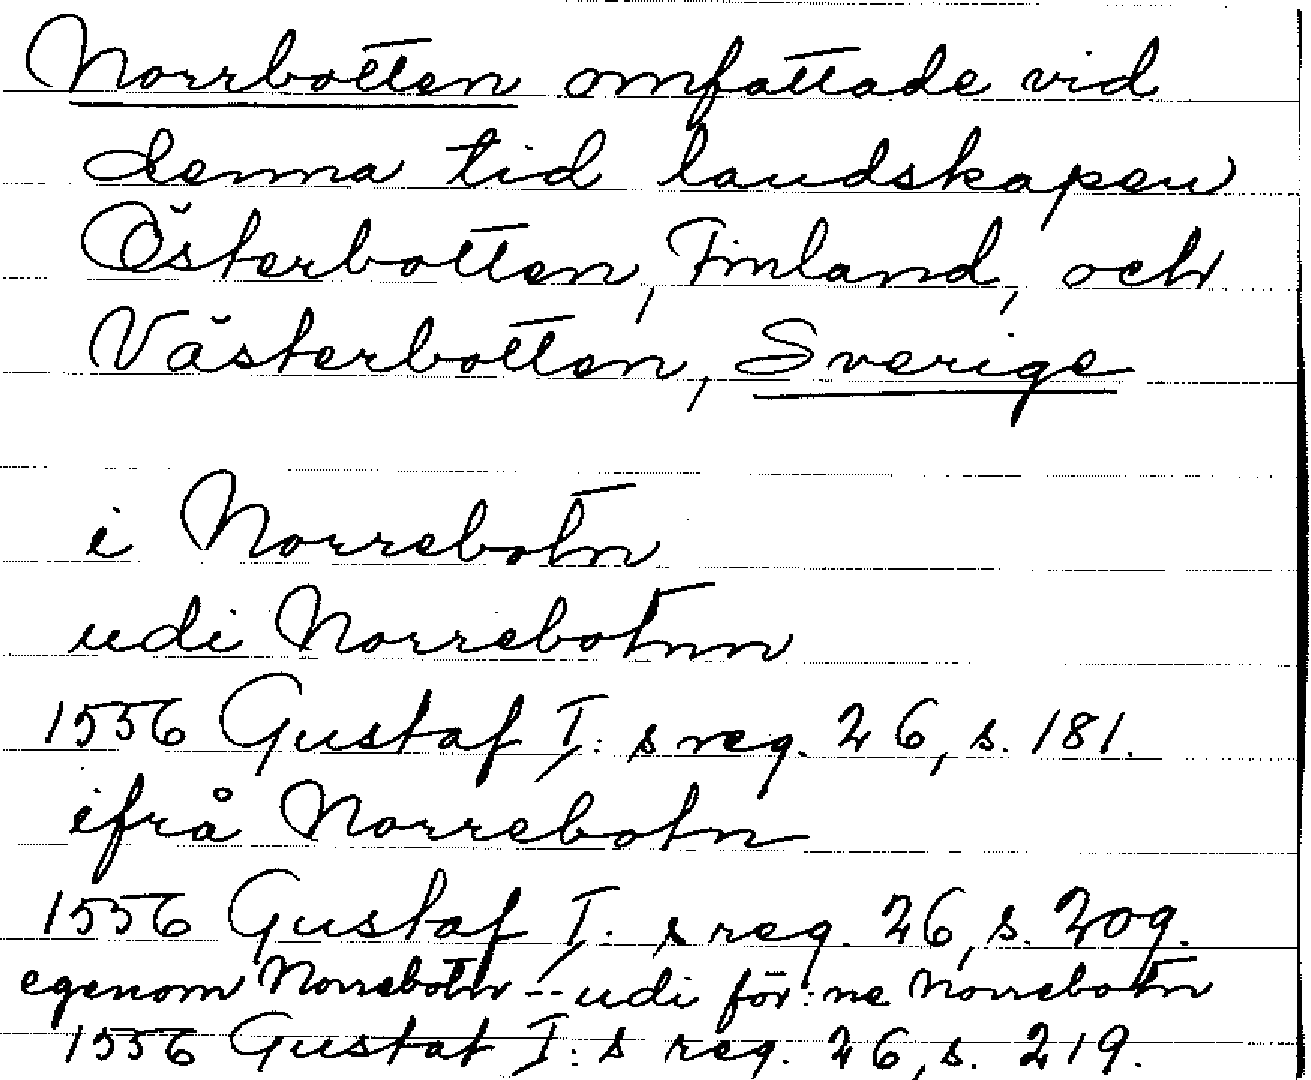 Norrbotten omfattade vid
denna tid landskapen
Österbotten, Finland, och
Västerbotten, Sverige
i Norrebotn
udi Norrebotnn
1556 Gustaf I: s reg. 26, s. 181.
ifrå Norrebotn
1556 Gustaf I: s reg. 26, s. 209.
egenom Norrebotn -- udi för:ne Norrebotn
1556 Gustaf I: s reg. 26, s. 219.